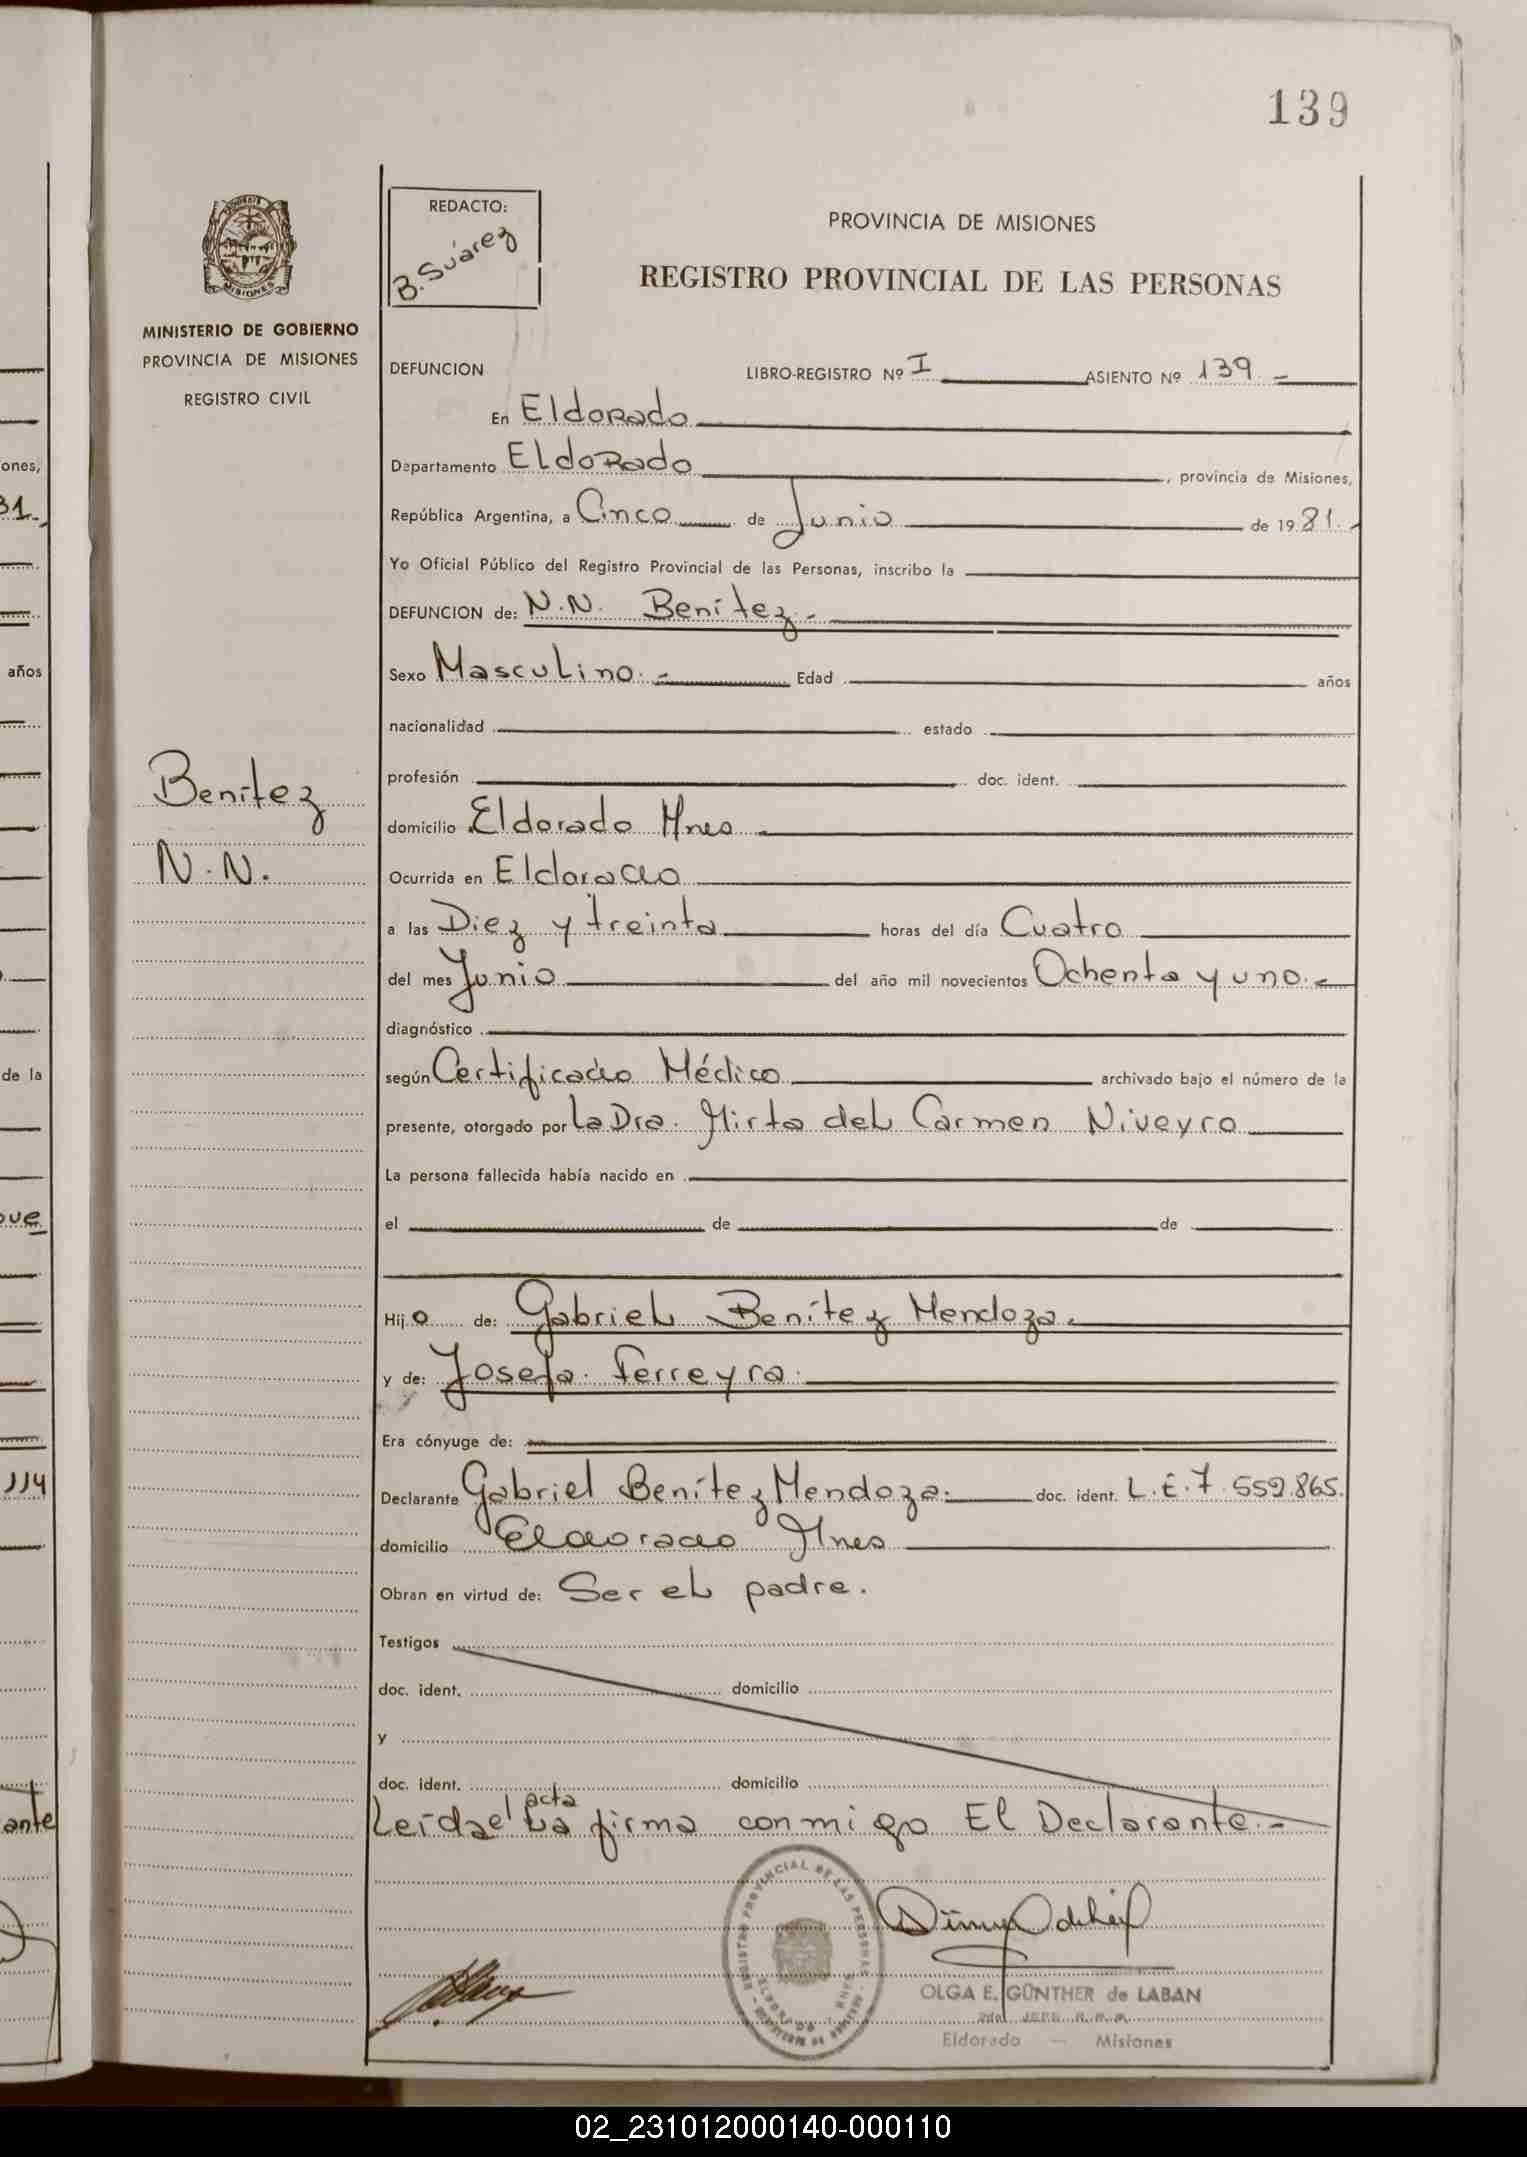 139
REDACTO:
B. Suárez
PROVINCIA DE MISIONES
REGISTRO PROVINCIAL DE LAS PERSONAS
MISIONES
MINISTERIO DE GOBIERNO
PROVINCIA DE MISIONES
REGISTRO CIVIL
DEFUNCION LIBRO-REGISTRO Nº I ASIENTO Nº 139.-
En Eldorado
Departamento Eldorado, provincia de Misiones,
República Argentina, a Cinco de Junio de 1981.-
Yo Oficial Público del Registro Provincial de las Personas, inscribo la
DEFUNCION de: N.N. Benítez.-
Sexo Masculino.- Edad años
nacionalidad estado
profesión doc. ident.
Benítez
N.N.
domicilio Eldorado Mnes
Ocurrida en Eldorado
a las Diez y treinta horas del día Cuatro
del mes Junio del año mil novecientos Ochenta y uno.-
diagnóstico
según Certificado Médico archivado bajo el número de la
presente, otorgado por la Dra. Mirta del Carmen Niveyro
La persona fallecida había nacido en
el de de
Hijo de: Gabriel Benítez Mendoza.
y de: Josefa Ferreyra.
Era cónyuge de:
Declarante Gabriel Benítez Mendoza. doc. ident. L.E. 7.559.865.
domicilio Eldorado Mnes
Obran en virtud de: Ser el padre.
Testigos
doc. ident. domicilio
y
doc. ident. domicilio
acta
Leída el La firma conmigo El Declarante.-
REGISTRO PROVINCIAL DE LAS PERSONAS
OLGA E. GÜNTHER de LABAN
2do. JEFE R.P.P.
Eldorado — Misiones
ones,
31.
años
de la
ove
114
ante
02_231012000140-000110